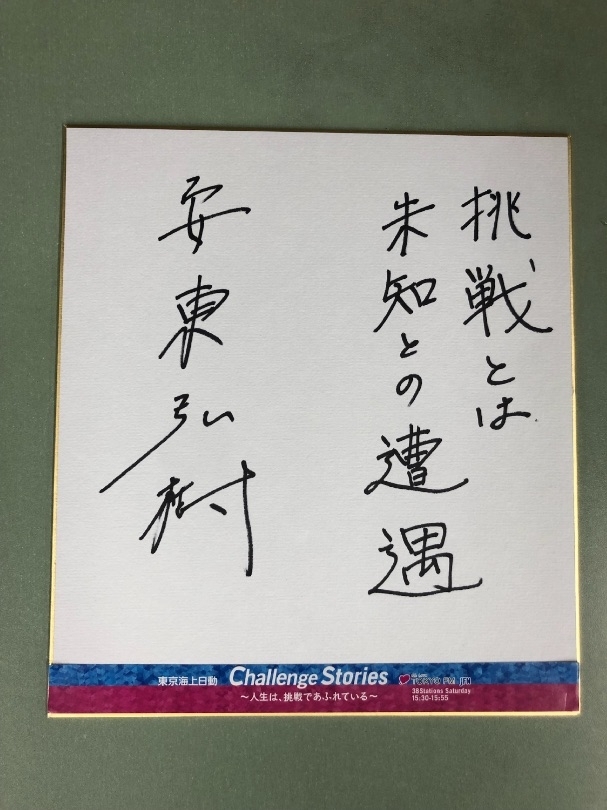 挑戦とは
未知との遭遇
安東弘樹
東京海上日動 Challenge Stories
〜人生は、挑戦であふれている〜
TOKYO FM JFN
38Stations Saturday
15:30-15:55